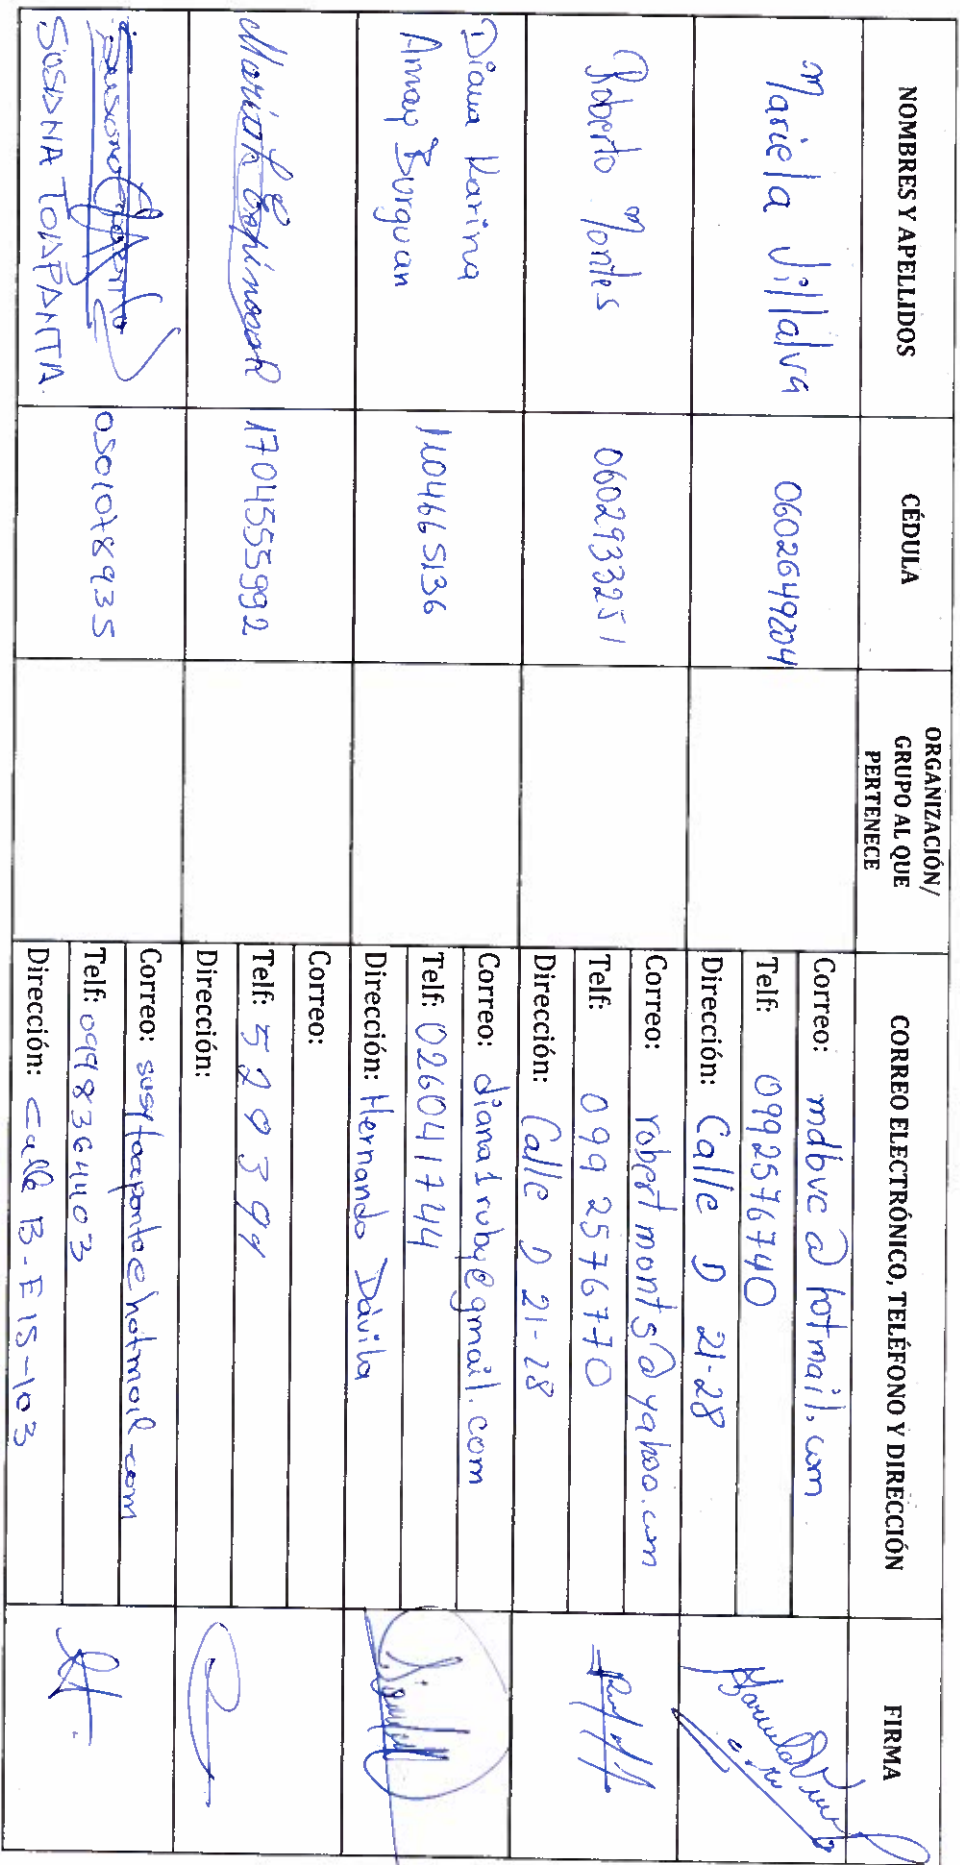 NOMBRES Y APELLIDOS
CÉDULA
ORGANIZACIÓN/
GRUPO AL QUE
PERTENECE
CORREO ELECTRÓNICO, TELÉFONO Y DIRECCIÓN
FIRMA
Mariela Villalva
0602649204
Correo: mdbvc@hotmail.com
Telf: 0992576740
Dirección: Calle D 21-28
Roberto Montes
0602933251
Correo: robertmonts@yahoo.com
Telf: 099 2576770
Dirección: Calle D 21-28
Diana Karina
Amay Burguan
1104665136
Correo: diana1ruby@gmail.com
Telf: 026041744
Dirección: Hernando Dávila
Maritth Espinosa
1704555992
Correo:
Telf:
Dirección:
SUSANA TOAPANTA.
0501078935
Correo: susytoapanta@hotmail.com
Telf: 0998364403
Dirección: Calle B-E15-103